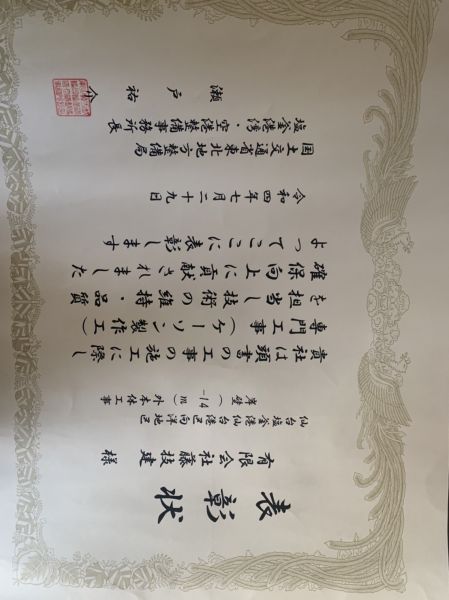 表彰状
有限会社藤技建 様
仙台塩釜港仙台港区向洋地区
岸壁(-14m)外本体工事
貴社は頭書の工事の施工に際し
専門工事(ケーソン製作工)
を担当し技術の維持・品質
確保向上に貢献されました
よってここに表彰します
令和四年七月二十九日
国土交通省東北地方整備局
塩釜港湾・空港整備事務所長
瀬戸祐介